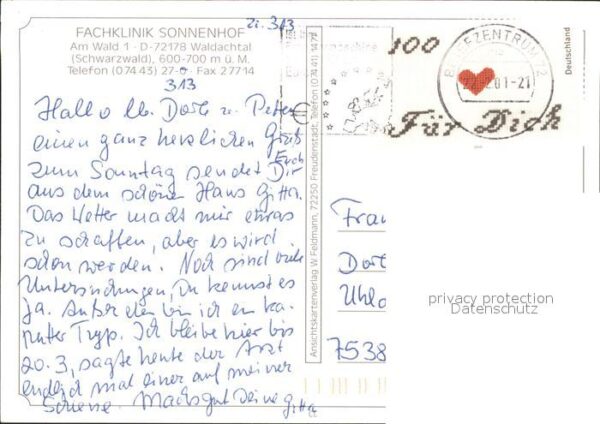 Zi. 313
FACHKLINIK SONNENHOF
Am Wald 1 · D-72178 Waldachtal
(Schwarzwald), 600-700 m ü. M.
Telefon (07443) 27-0 Fax 27714
313
Hallo lb. Dorle u. Peter
einen ganz herzlichen Gruß
zum Sonntag sendet Dir
Euch
aus dem schönen Haus Gitta.
Das Wetter macht mir etwas
zu schaffen, aber es wird
schon werden. Noch sind viele
Untersuchungen, Du kennst es
ja. Außerdem bin ich ein ka-
putter Typ. Ich bleibe hier bis
20.3, sagte heute der Arzt
endlich mal einer auf meiner
Machs gut Deine Gitta
Ansichtskartenverlag W. Feldmann, 72250 Freudenstadt, Telefon (07441) 1471
100
Für Dich
Deutschland
BRIEFZENTRUM 72
01-21
Frau
Dorl
Uhla
7538
privacy protection
Datenschutz